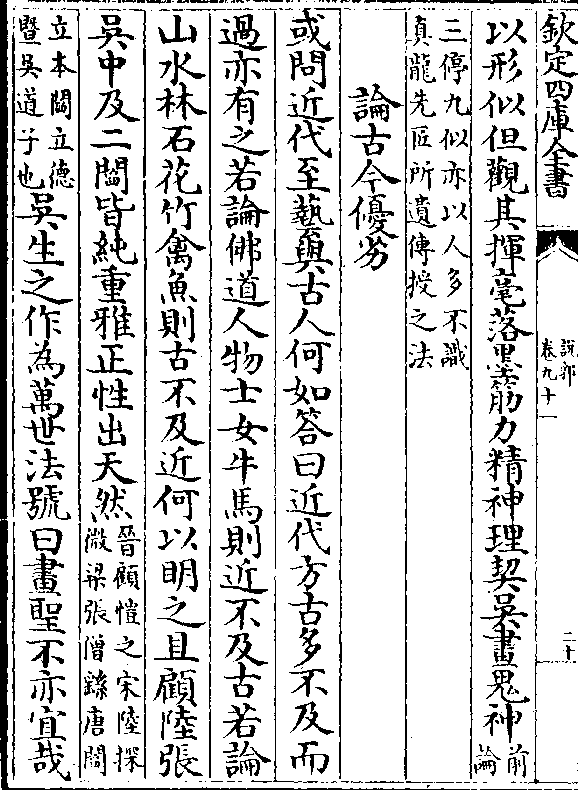 欽定四庫全書
說郛
卷九十一
二十
以形似但觀其揮毫落墨筋力精神理契吳畫鬼神
前
論
三停九似亦以人多不識
真龍先匠所遺傳授之法
論古今優劣
或問近代至藝與古人何如答曰近代方古多不及而
過亦有之若論佛道人物士女牛馬則近不及古若論
山水林石花竹禽魚則古不及近何以明之且顧陸張
吳中及二閻皆純重雅正性出天然
晉顧愷之宋陸探
微梁張僧繇唐閻
立本閻立德
暨吳道子也
吳生之作為萬世法號曰畫聖不亦宜哉